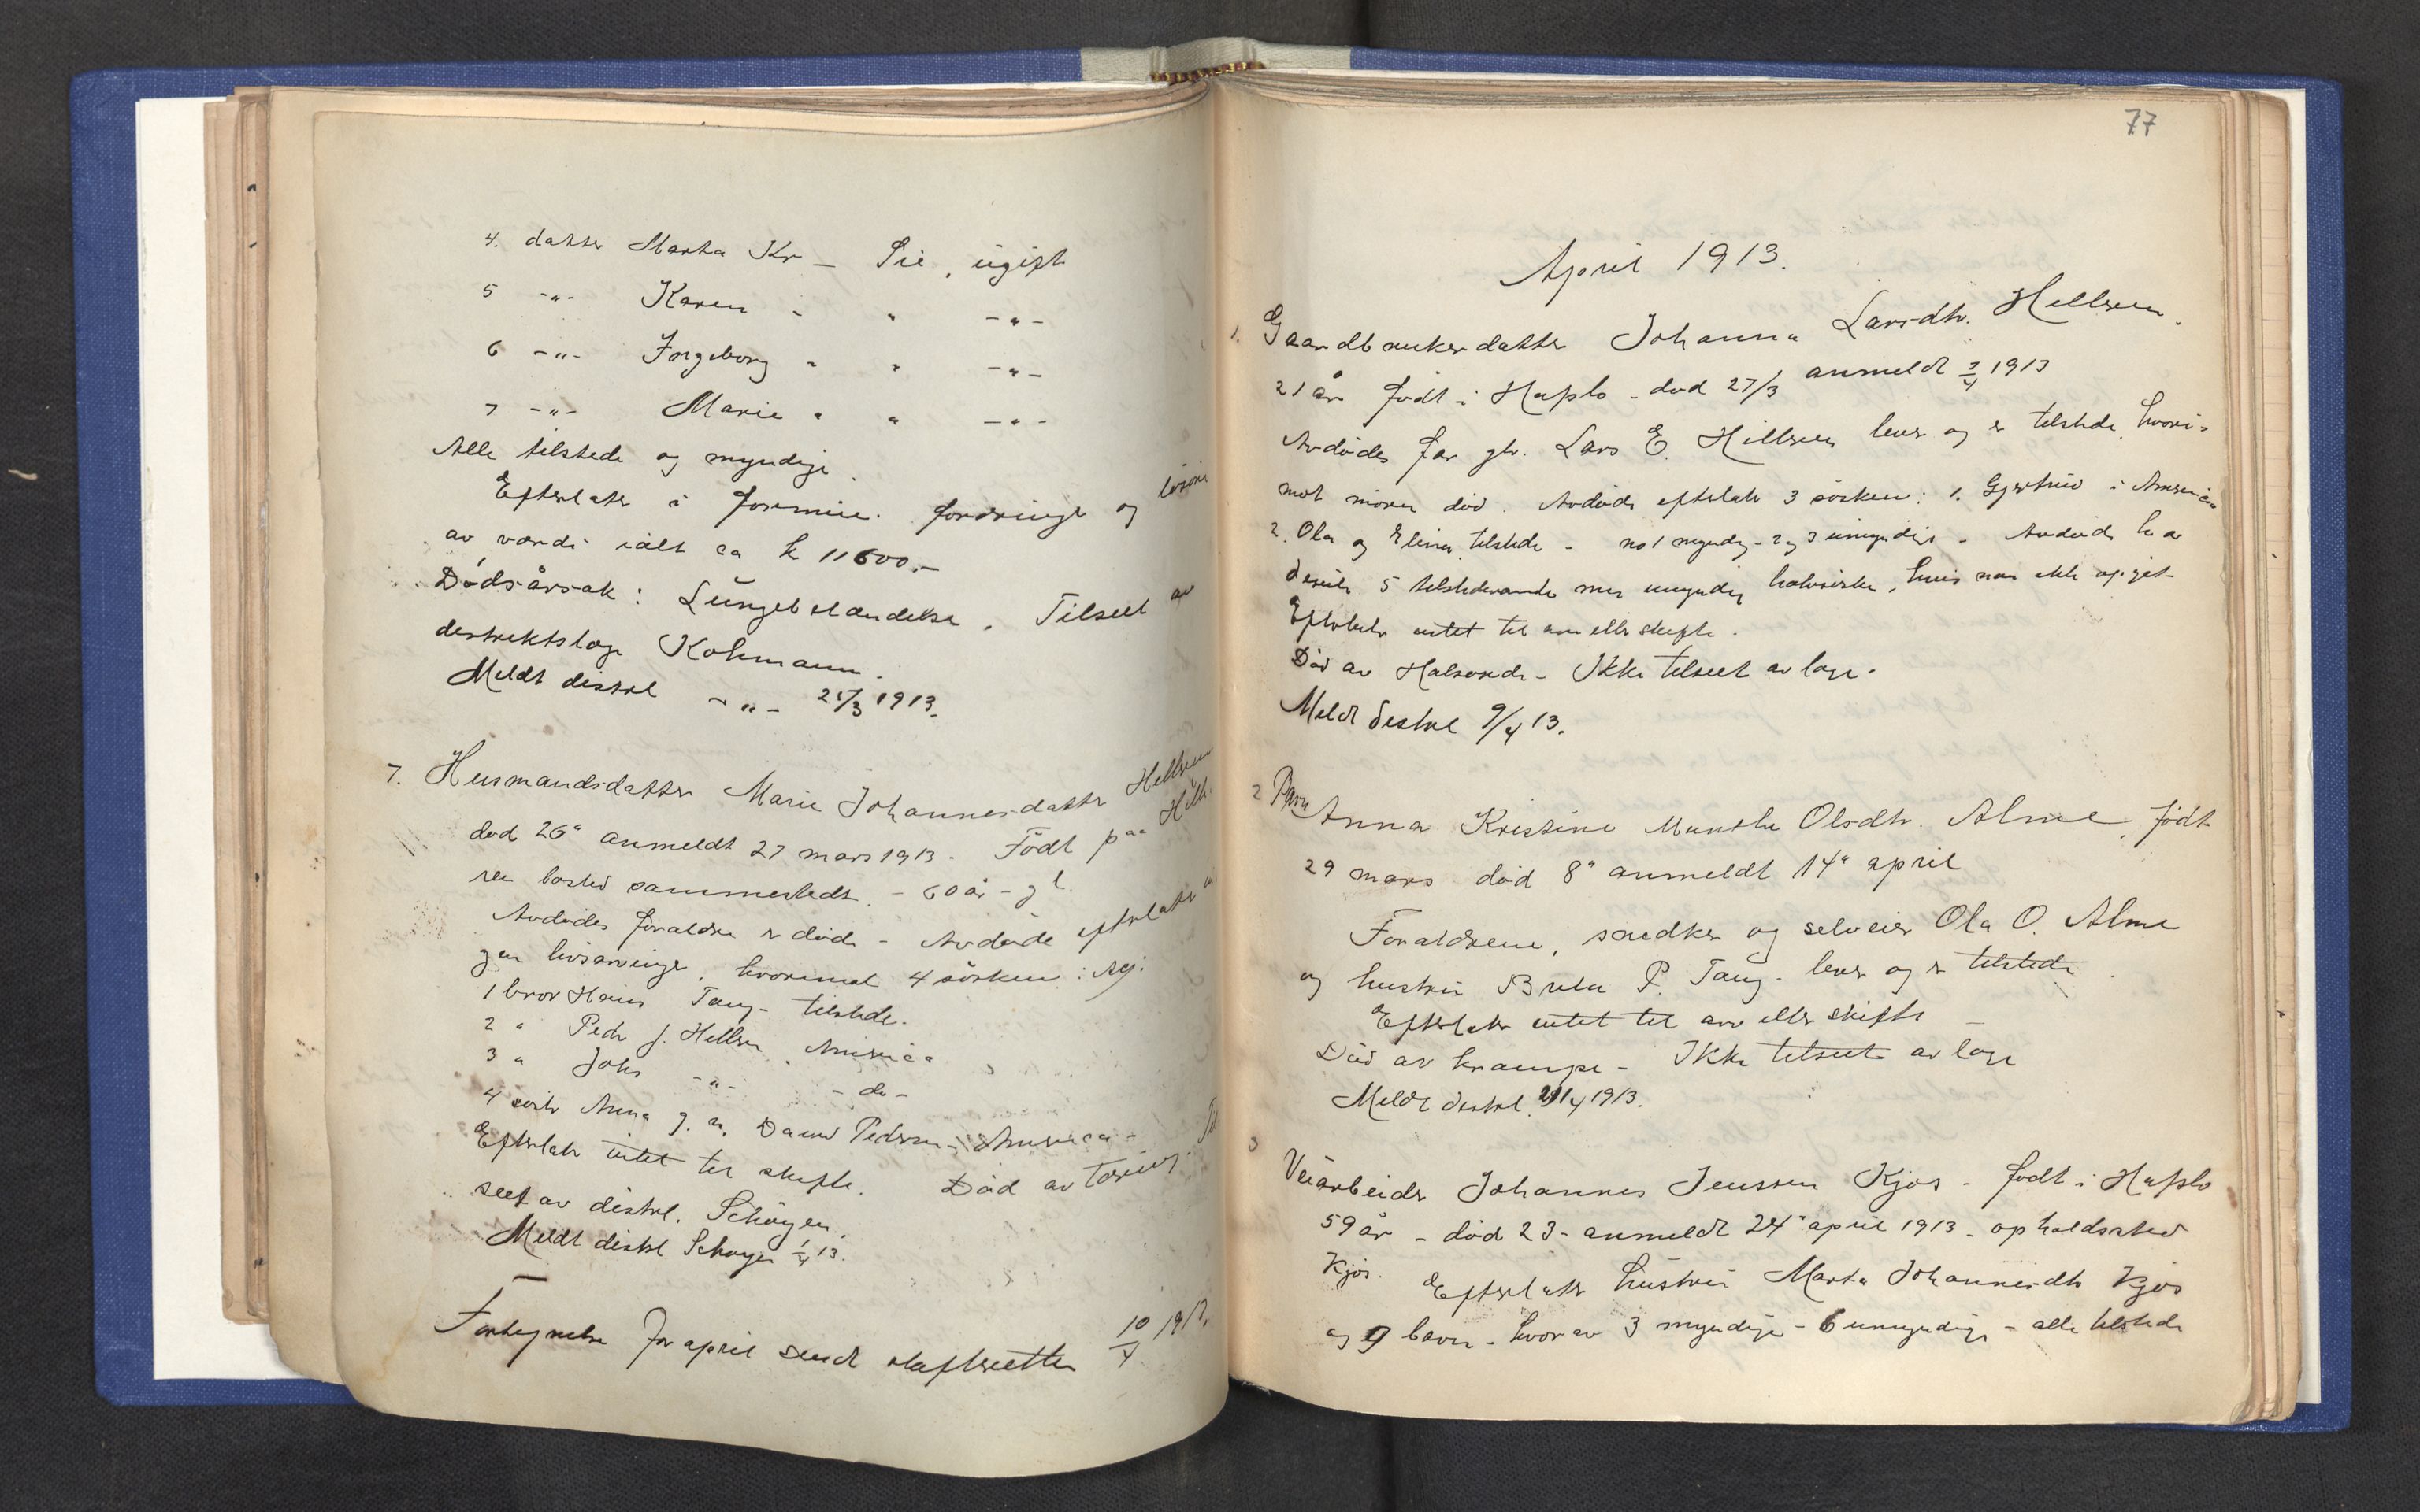 4. datter Marta Kr - Sie, ugift
5 -"- Karen " " -"-
6 -"- Ingeborg " " -"-
7 -"- Marie " " -"-
Alle tilstede og myndige.
Efterlater i formue. fordringer og løsøre
av værdi ialt ca k 11600.-
Dödsårsak: Lungebetændelse. Tilseet av
distriktslæge Kohmann.
Meldt distrl -"- 25/3 1913.
7. Husmandsdatter Marie Johannesdatter Hellsren
död 26" anmeldt 27 mars 1913. Födt paa Hills
ren bosted sammesteds. - 60 år - gl.
Avdödes forældre er döde - Avdöde efterlater in
gen livsarvinger, hvorimot 4 sösken:
1 bror Hans Tang - tilstede.
2 " Peder J. Hellsren, America
3 " Johs -"- - do -
4 söster Anna g. m. David Pedersen - America -
Efterlater intet til skifte. Död av tæring. Til
seet av distrl. Schöyen.
Meldt distrl Schøyen 1/4 13.
Fortegnelse for april sendt skifteretten 10/4 1913.
77
April 1913.
1. Gaardbrukerdatter Johanna Larsdtr. Hellsren.
21 år födt i Hafslo - död 27/3 anmeldt 3/4 1913
Avdödes far gbr. Lars E. Hillsren lever og er tilstede, hvori=
mot moren död. Avdöde efterlater 3 sösken: 1. Gjertrud i America
2. Ola og Elina tilstede - no 1 myndig - 2 og 3 umyndige - Avdöde har
desuten 5 tilstedeværende men umyndige halvsöske, hvis navn ikke opget-
Efterlater intet til arv eller skifte.
Död av Halsonde - Ikke tilseet av læge.
Meldt distrl 9/4 13.
2 Barn Anna Kristine Munthe Olsdtr. Alme, födt
29 mars död 8" anmeldt 14" april
Forældrene, snedker og selveier Ola O. Alme
og hustru Brita P. Tang - lever og er tilstede.
Efterlater intet til arv eller skifte -
Död av krampe - Ikke tilseet av læge
Meldt distrl. 21/4 1913.
3 Veiarbeider Johannes Jenssen Kjos - födt i Hafslo
59 år - död 23 - anmeldt 24" april 1913 - opholdssted
Kjos. Efterlater hustru Marta Johannesdtr Kjos
og 9 barn - hvorav 3 myndige - 6 umyndige - alle tilstede